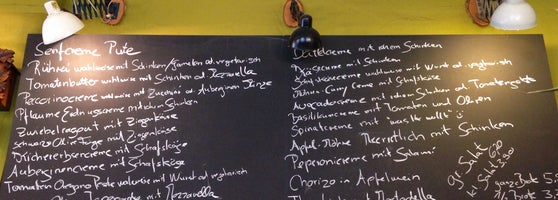 Senfcreme Pute
Rührei wahlweise mit Schinken/Garnelen od. vegetarisch
Tomatenbutter wahlweise mit Schinken od. Mozzarella
Peccorinocreme wahlweise mit Zucchini od. Auberginen Minze
Pflaume Erdnusscreme mit rohem Schinken
Zwiebelragout mit Ziegenkäse
Schwarze Olive Feige mit Ziegenkäse
Kichererbsencreme mit Schafskäse
Auberginencreme mit Schafskäse
Tomaten Oregano Pute wahlweise mit Wurst od. vegetarisch
mit Mozzarella
Dattelcreme mit rohem Schinken
mit Schinken
wahlweise mit Wurst od. vegetarisch
Curry Creme mit Schafskäse
Avocadocreme mit rohem Schinken od. Tomaten
Basilikumcreme mit Tomaten und Oliven
Spinatcreme mit "weeste wullt"
Apfel-Möhre Meerrettich mit Schinken
Peperonicreme mit Salami
Chorizo in Apfelwein
mit Mortadella
gr. Salat
kl. Salat
ganze Brote